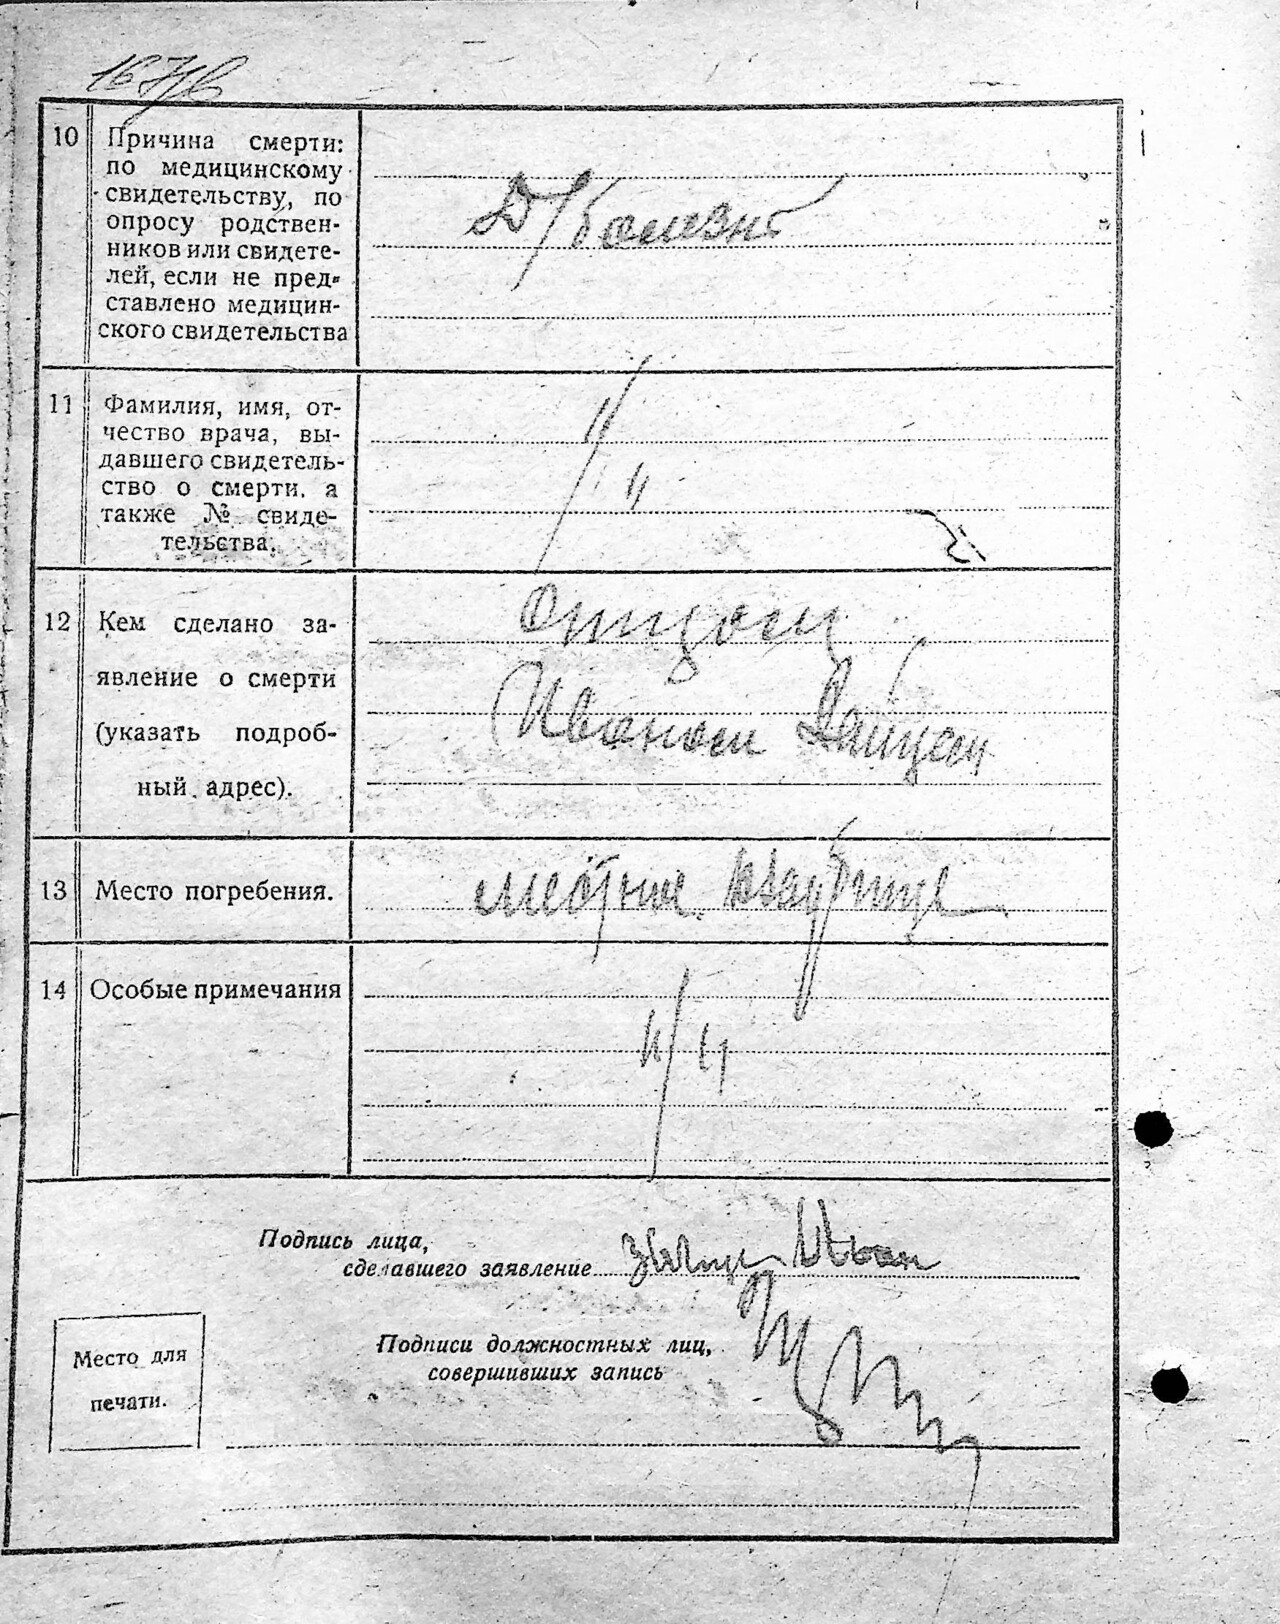 10 Причина смерти:
по медицинскому
свидетельству, по
опросу родствен-
ников или свидете-
лей, если не пред-
ставлено медицин-
ского свидетельства
Д/болезнь
11 Фамилия, имя, от-
чество врача, вы-
давшего свидетель-
ство о смерти, а
также № свиде-
тельства.
12 Кем сделано за-
явление о смерти
(указать подроб-
ный адрес).
Отцом
Иваном
13 Место погребения.
местное кладбище
14 Особые примечания
Подпись лица,
сделавшего заявление
Иван
Подписи должностных лиц,
совершивших запись
Место для
печати.